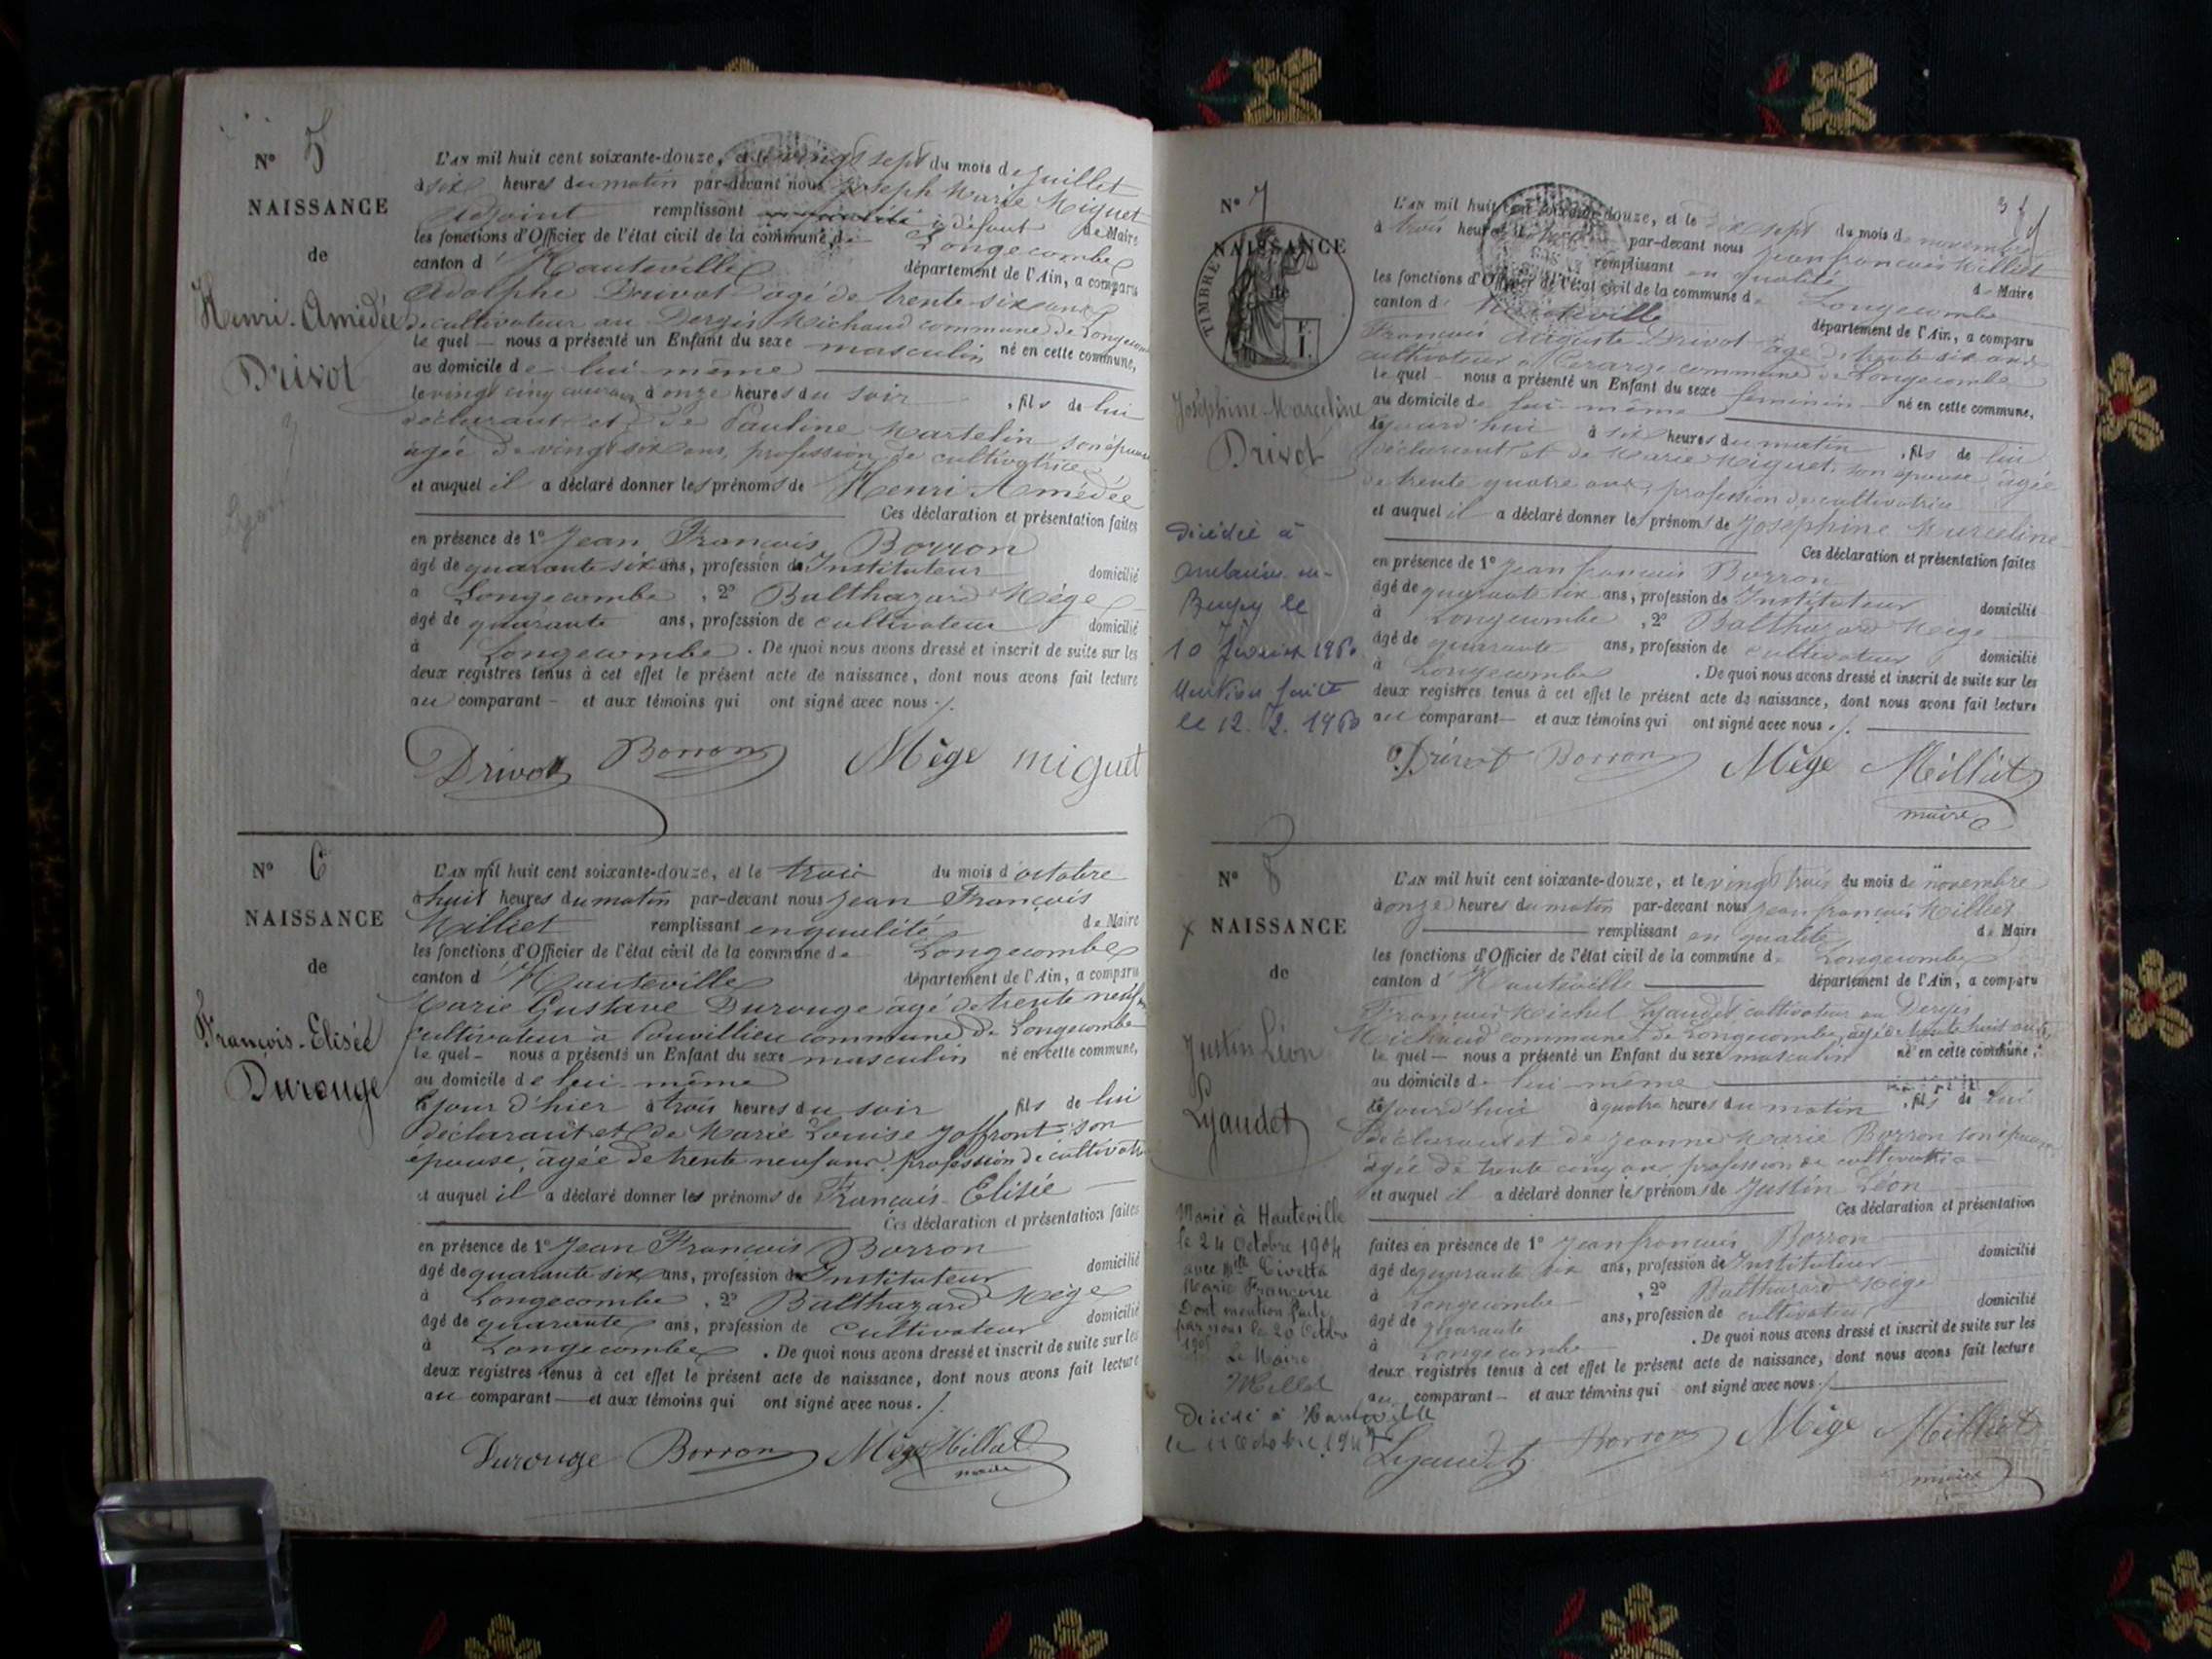 N° 5
NAISSANCE
de
Henri-Amédée
Drivot
Lyon
L'AN mil huit cent soixante-douze, et le vingt sept du mois de juillet
à six heures du matin par-devant nous Joseph Marie Miguet
Adjoint remplissant à défaut de Maire
les fonctions d'Officier de l'état civil de la commune de Longecombe
canton d'Hauteville département de l'Ain, a comparu
Adolphe Drivot âgé de trente-six ans
cultivateur au Dergis Michaud commune de Longecombe
le quel — nous a présenté un Enfant du sexe masculin né en cette commune,
au domicile de lui même
le vingt cinq courant à onze heures du soir , fils de lui
déclarant et de Pauline Martelin son épouse
âgée de vingt six ans, profession de cultivatrice
et auquel il a déclaré donner les prénoms de Henri Amédée
Ces déclaration et présentation faites
en présence de 1° Jean François Borron
âgé de quarante six ans, profession de Instituteur domicilié
à Longecombe , 2° Balthazard Mège
âgé de quarante ans, profession de cultivateur domicilié
à Longecombe . De quoi nous avons dressé et inscrit de suite sur les
deux registres tenus à cet effet le présent acte de naissance, dont nous avons fait lecture
au comparant — et aux témoins qui ont signé avec nous ./.
Drivot Borron Mège miguet
N° 6
NAISSANCE
de
François-Elisée
Durouge
L'AN mil huit cent soixante-douze, et le trois du mois d'octobre
à huit heures du matin par-devant nous Jean François
Milliet remplissant en qualité de Maire
les fonctions d'Officier de l'état civil de la commune de Longecombe
canton d'Hauteville département de l'Ain, a comparu
Marie Gustave Durouge âgé de trente neuf ans
cultivateur à Pouvillieu commune de Longecombe
le quel — nous a présenté un Enfant du sexe masculin né en cette commune,
au domicile de lui-même
le jour d'hier à trois heures du soir fils de lui
déclarant et de Marie Louise Joffront son
épouse, âgée de trente neuf ans, profession de cultivatrice
et auquel il a déclaré donner les prénoms de François-Elisée
Ces déclaration et présentation faites
en présence de 1° Jean François Borron
âgé de quarante six ans, profession de Instituteur domicilié
à Longecombe , 2° Balthazard Mège
âgé de quarante ans, profession de cultivateur domicilié
à Longecombe . De quoi nous avons dressé et inscrit de suite sur les
deux registres tenus à cet effet le présent acte de naissance, dont nous avons fait lecture
au comparant — et aux témoins qui ont signé avec nous ./.
Durouge Borron Mège Milliet
maire
N° 7
NAISSANCE
de
TIMBRE
Joséphine-Marceline
Drivot
Décédée à
Ambérieu-en-
Bugey le
10 Février 1960
Mention faite
le 12. 2. 1960
L'AN mil huit cent soixante-douze, et le dix sept du mois de novembre
à trois heures du par-devant nous Jean François Milliet
remplissant en qualité de Maire
les fonctions d'Officier de l'état civil de la commune de Longecombe
canton d'Hauteville département de l'Ain, a comparu
François Auguste Drivot âgé de trente six ans
cultivateur à commune de Longecombe
le quel — nous a présenté un Enfant du sexe féminin né en cette commune,
au domicile de lui-même
aujourd'hui à six heures du matin , fils de lui
déclarant et de Marie Miguet, son épouse âgée
de trente quatre ans, profession de cultivatrice
et auquel il a déclaré donner les prénoms de Joséphine Marceline
Ces déclaration et présentation faites
en présence de 1° Jean françois Borron
âgé de quarante six ans, profession de Instituteur domicilié
à Longecombe , 2° Balthazard Mège
âgé de quarante ans, profession de cultivateur domicilié
à Longecombe . De quoi nous avons dressé et inscrit de suite sur les
deux registres tenus à cet effet le présent acte de naissance, dont nous avons fait lecture
au comparant — et aux témoins qui ont signé avec nous ./.
Drivot Borron Mège Milliet
maire
N° 8
NAISSANCE
de
Justin Léon
Lyaudet
Marié à Hauteville
le 24 Octobre 1904
avec Mlle Livetta
Marie Françoise
Dont mention faite
par nous le 20 Octobre
Le Maire
Milliet
Décédé à Hauteville
L'AN mil huit cent soixante-douze, et le vingt trois du mois de novembre
à onze heures du matin par-devant nous Jean françois Milliet
remplissant en qualité de Maire
les fonctions d'Officier de l'état civil de la commune de Longecombe
canton d'Hauteville département de l'Ain, a comparu
François Michel Lyaudet cultivateur au Dergis
Michaud commune de Longecombe, âgé de trente huit ans
le quel — nous a présenté un Enfant du sexe masculin né en cette commune,
au domicile de lui-même
aujourd'hui à quatre heures du matin , fils de lui
déclarant et de Jeanne Marie Borron son épouse
âgée de trente cinq ans profession de cultivatrice
et auquel il a déclaré donner les prénoms de Justin Léon
Ces déclaration et présentation
faites en présence de 1° Jean françois Borron
âgé de quarante six ans, profession de Instituteur domicilié
à Longecombe , 2° Balthazard Mège
âgé de quarante ans, profession de cultivateur domicilié
à Longecombe . De quoi nous avons dressé et inscrit de suite sur les
deux registres tenus à cet effet le présent acte de naissance, dont nous avons fait lecture
au comparant — et aux témoins qui ont signé avec nous ./.
Lyaudet Borron Mège Milliet
maire